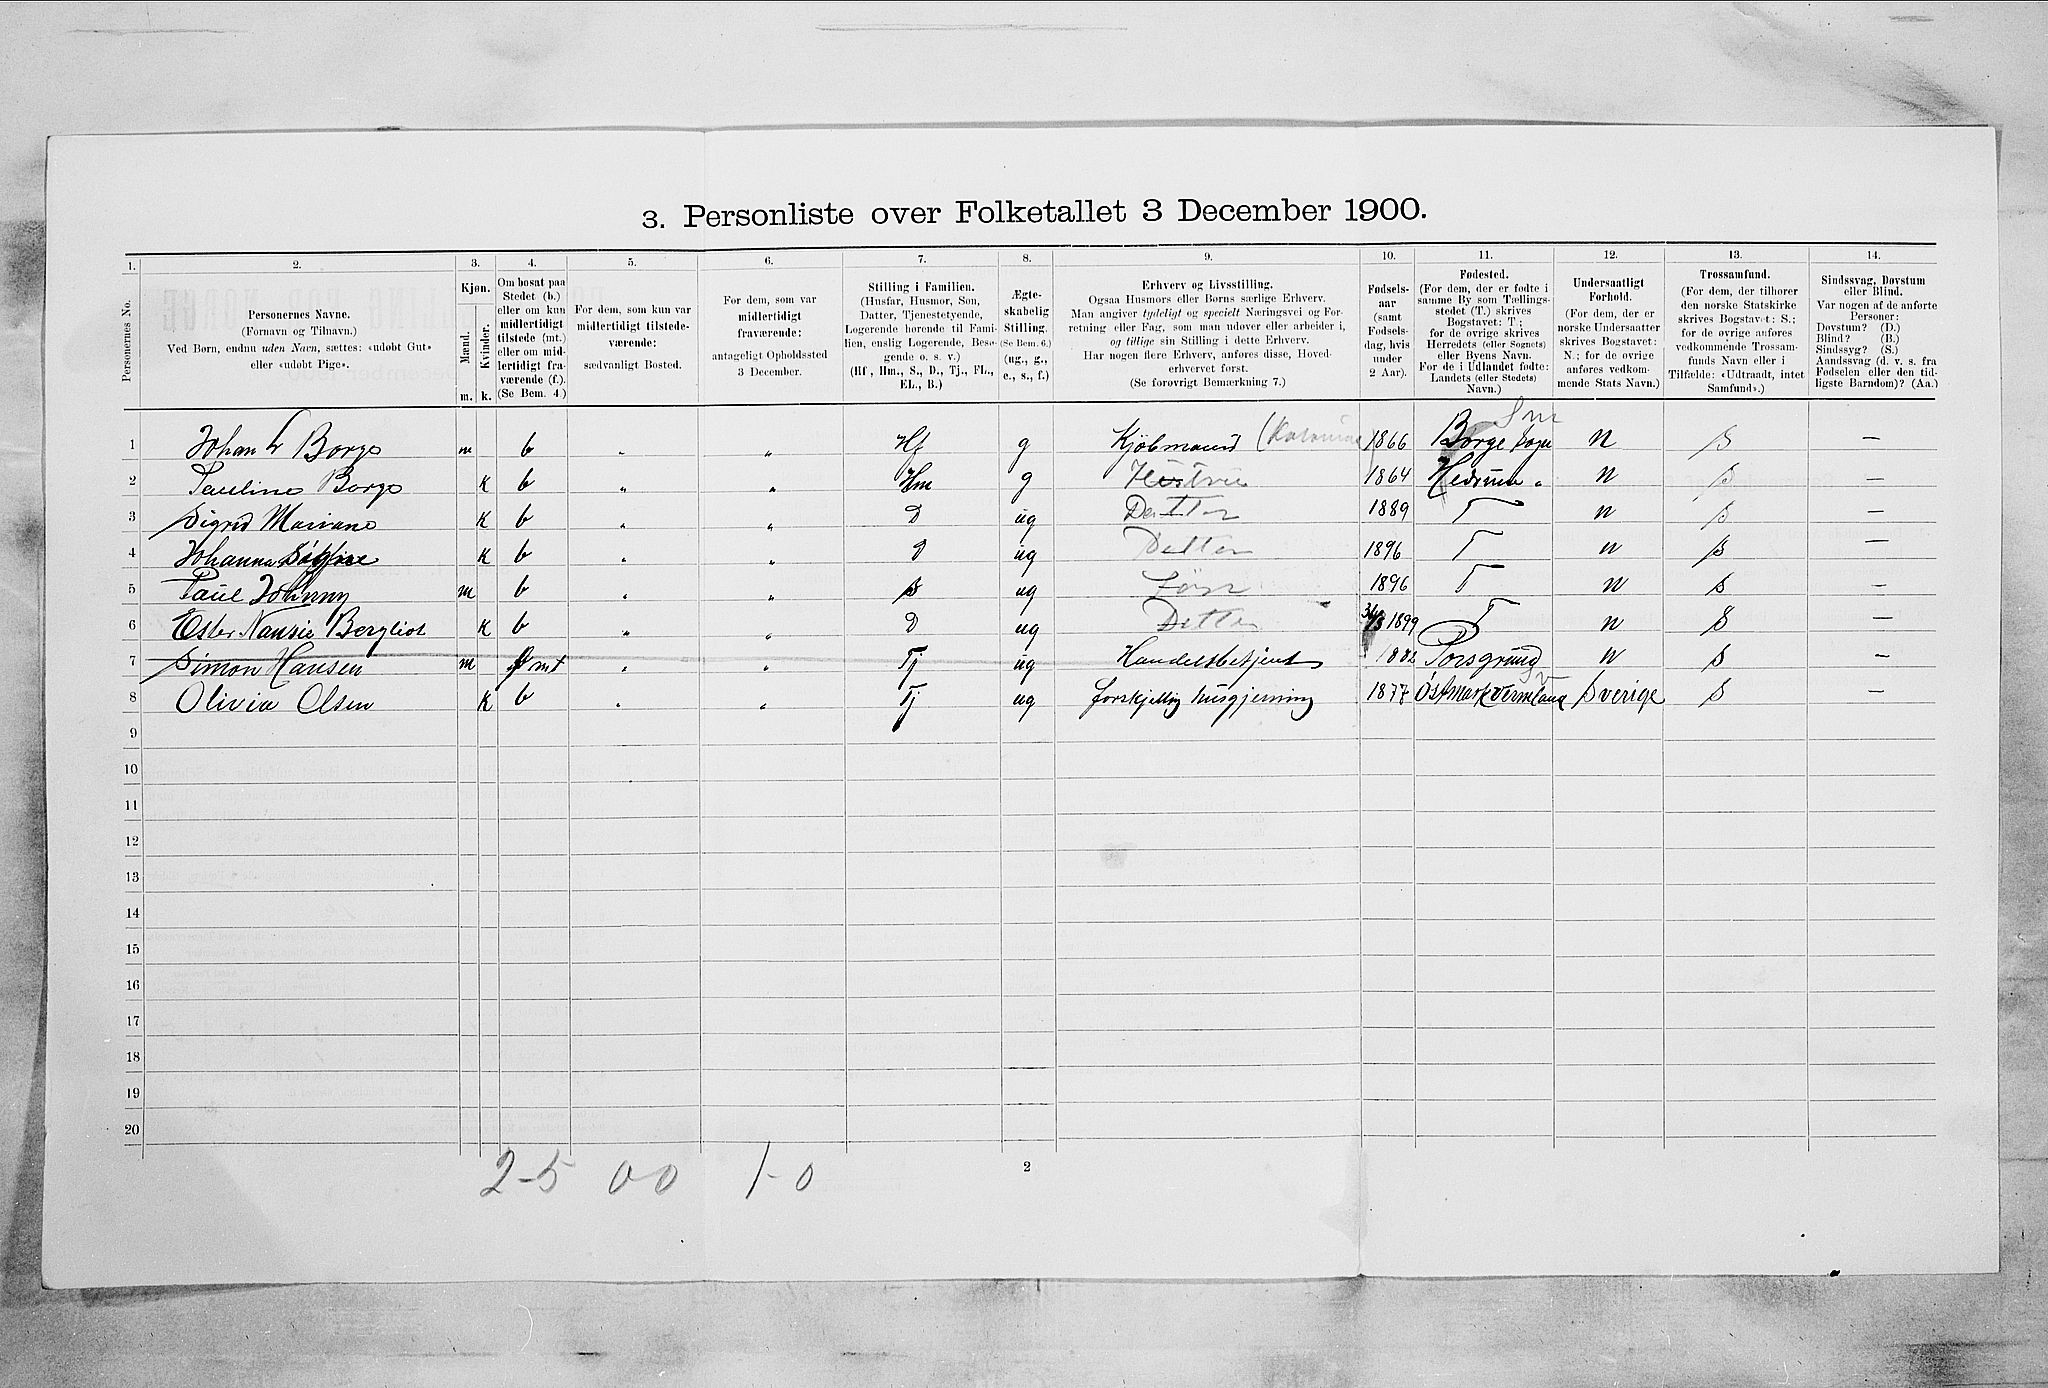 3. Personliste over Folketallet 3 December 1900.
1. 2. 3. 4. 5. 6. 7. 8. 9. 10. 11. 12. 13. 14.
Personernes No.
Personernes Navne.
(Fornavn og Tilnavn.)
Ved Børn, endnu uden Navn, sættes: «udøbt Gut»
eller «udøbt Pige».
Kjøn.
Mænd.
Kvinder.
m. k.
Om bosat paa
Stedet (b.)
eller om kun
midlertidigt
tilstede (mt.)
eller om mid-
lertidigt fra-
værende (f.).
(Se Bem. 4.)
For dem, som kun var
midlertidigt tilstede-
værende:
sædvanligt Bosted.
For dem, som var
midlertidigt
fraværende:
antageligt Opholdssted
3 December.
Stilling i Familien.
(Husfar, Husmor, Søn,
Datter, Tjenestetyende,
Logerende hørende til Fami-
lien, enslig Logerende, Besø-
gende o. s. v.)
(Hf, Hm., S., D., Tj., FL.,
EL., B.)
Ægte-
skabelig
Stilling.
(Se Bem. 6.)
(ug., g.,
e., s., f.)
Erhverv og Livsstilling.
Ogsaa Husmors eller Børns særlige Erhverv.
Man angiver tydeligt og specielt Næringsvei og For-
retning eller Fag, som man udøver eller arbeider i,
og tillige sin Stilling i dette Erhverv.
Har nogen flere Erhverv, anføres disse, Hoved-
erhvervet først.
(Se forøvrigt Bemærkning 7.)
Fødsels-
aar
(samt
Fødsels-
dag, hvis
under
2 Aar).
Fødested.
(For dem, der er fødte i
samme By som Tællings-
stedet (T.) skrives
Bogstavet: T;
for de øvrige skrives
Herredets (eller Sognets)
eller Byens Navn.
For de i Udlandet fødte:
Landets (eller Stedets)
Navn.)
Undersaatligt
Forhold.
(For dem, der er
norske Undersaatter
skrives Bogstavet:
N.; for de øvrige
anføres vedkom-
mende Stats Navn.)
Trossamfund.
(For dem, der tilhører
den norske Statskirke
skrives Bogstavet: S.;
for de øvrige anføres
vedkommende Trossam-
funds Navn eller i
Tilfælde: «Udtraadt, intet
Samfund».)
Sindssvag, Døvstum
eller Blind.
Var nogen af de anførte
Personer:
Døvstum? (D.)
Blind? (B.)
Sindssyg? (S.)
Aandssvag (d. v. s. fra
Fødselen eller den tid-
ligste Barndom)? (Aa.)
1 Johan L Borge m b " " Hf g Kjøbmand 1866 Borge sogn N S —
2 Pauline Borge k b " " Hm g Hustru 1864 Hedrum " N S —
3 Sigrid Mariane k b " " D ug Datter 1889 T N S —
4 Johanna k b " " D ug Datter 1896 T N S —
5 Paul Johnny m b " " S ug Søn 1896 T N S —
6 Ester Nansie Bergliot k b " " D ug Datter 1899 T N S —
7 Simon Hansen m mt " " Tj ug Handelsbetjent 1882 Porsgrund N S —
8 Olivia Olsen k b " " Tj ug forskjellig husgjerning 1877 Østmark Vermland Sverige S —
9
10
11
12
13
14
15
16
17
18
19
20
2-5 0 0 1-0
2